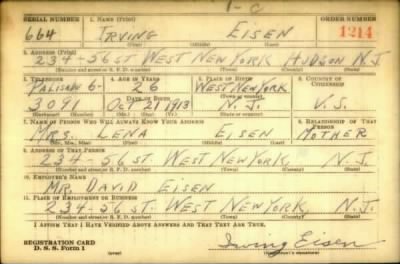 1-C
SERIAL NUMBER 1. NAME (Print) ORDER NUMBER
664 IRVING EISEN 1214
(First) (Middle) (Last)
2. ADDRESS (Print)
234-56 ST. WEST NEW YORK HUDSON N.J.
(Number and street or R. F. D. number) (Town) (County) (State)
3. TELEPHONE 4. AGE IN YEARS 5. PLACE OF BIRTH 6. COUNTRY OF CITIZENSHIP
PALISADE 6- 26 WEST NEW YORK
DATE OF BIRTH (Town or county)
3091 OCT 21 1913 N.J. U.S.
(Exchange) (Number) (Mo.) (Day) (Yr.) (State or country)
7. NAME OF PERSON WHO WILL ALWAYS KNOW YOUR ADDRESS 8. RELATIONSHIP OF THAT PERSON
MRS. LENA EISEN MOTHER
(Mr., Mrs., Miss) (First) (Middle) (Last)
9. ADDRESS OF THAT PERSON
234-56 ST. WEST NEW YORK N.J.
(Number and street or R. F. D. number) (Town) (County) (State)
10. EMPLOYER'S NAME
MR. DAVID EISEN
11. PLACE OF EMPLOYMENT OR BUSINESS
234-56 ST. WEST NEW YORK N.J.
(Number and street or R. F. D. number) (Town) (County) (State)
I AFFIRM THAT I HAVE VERIFIED ABOVE ANSWERS AND THAT THEY ARE TRUE.
REGISTRATION CARD
D. S. S. Form 1 (over) Irving Eisen
(Registrant's signature)